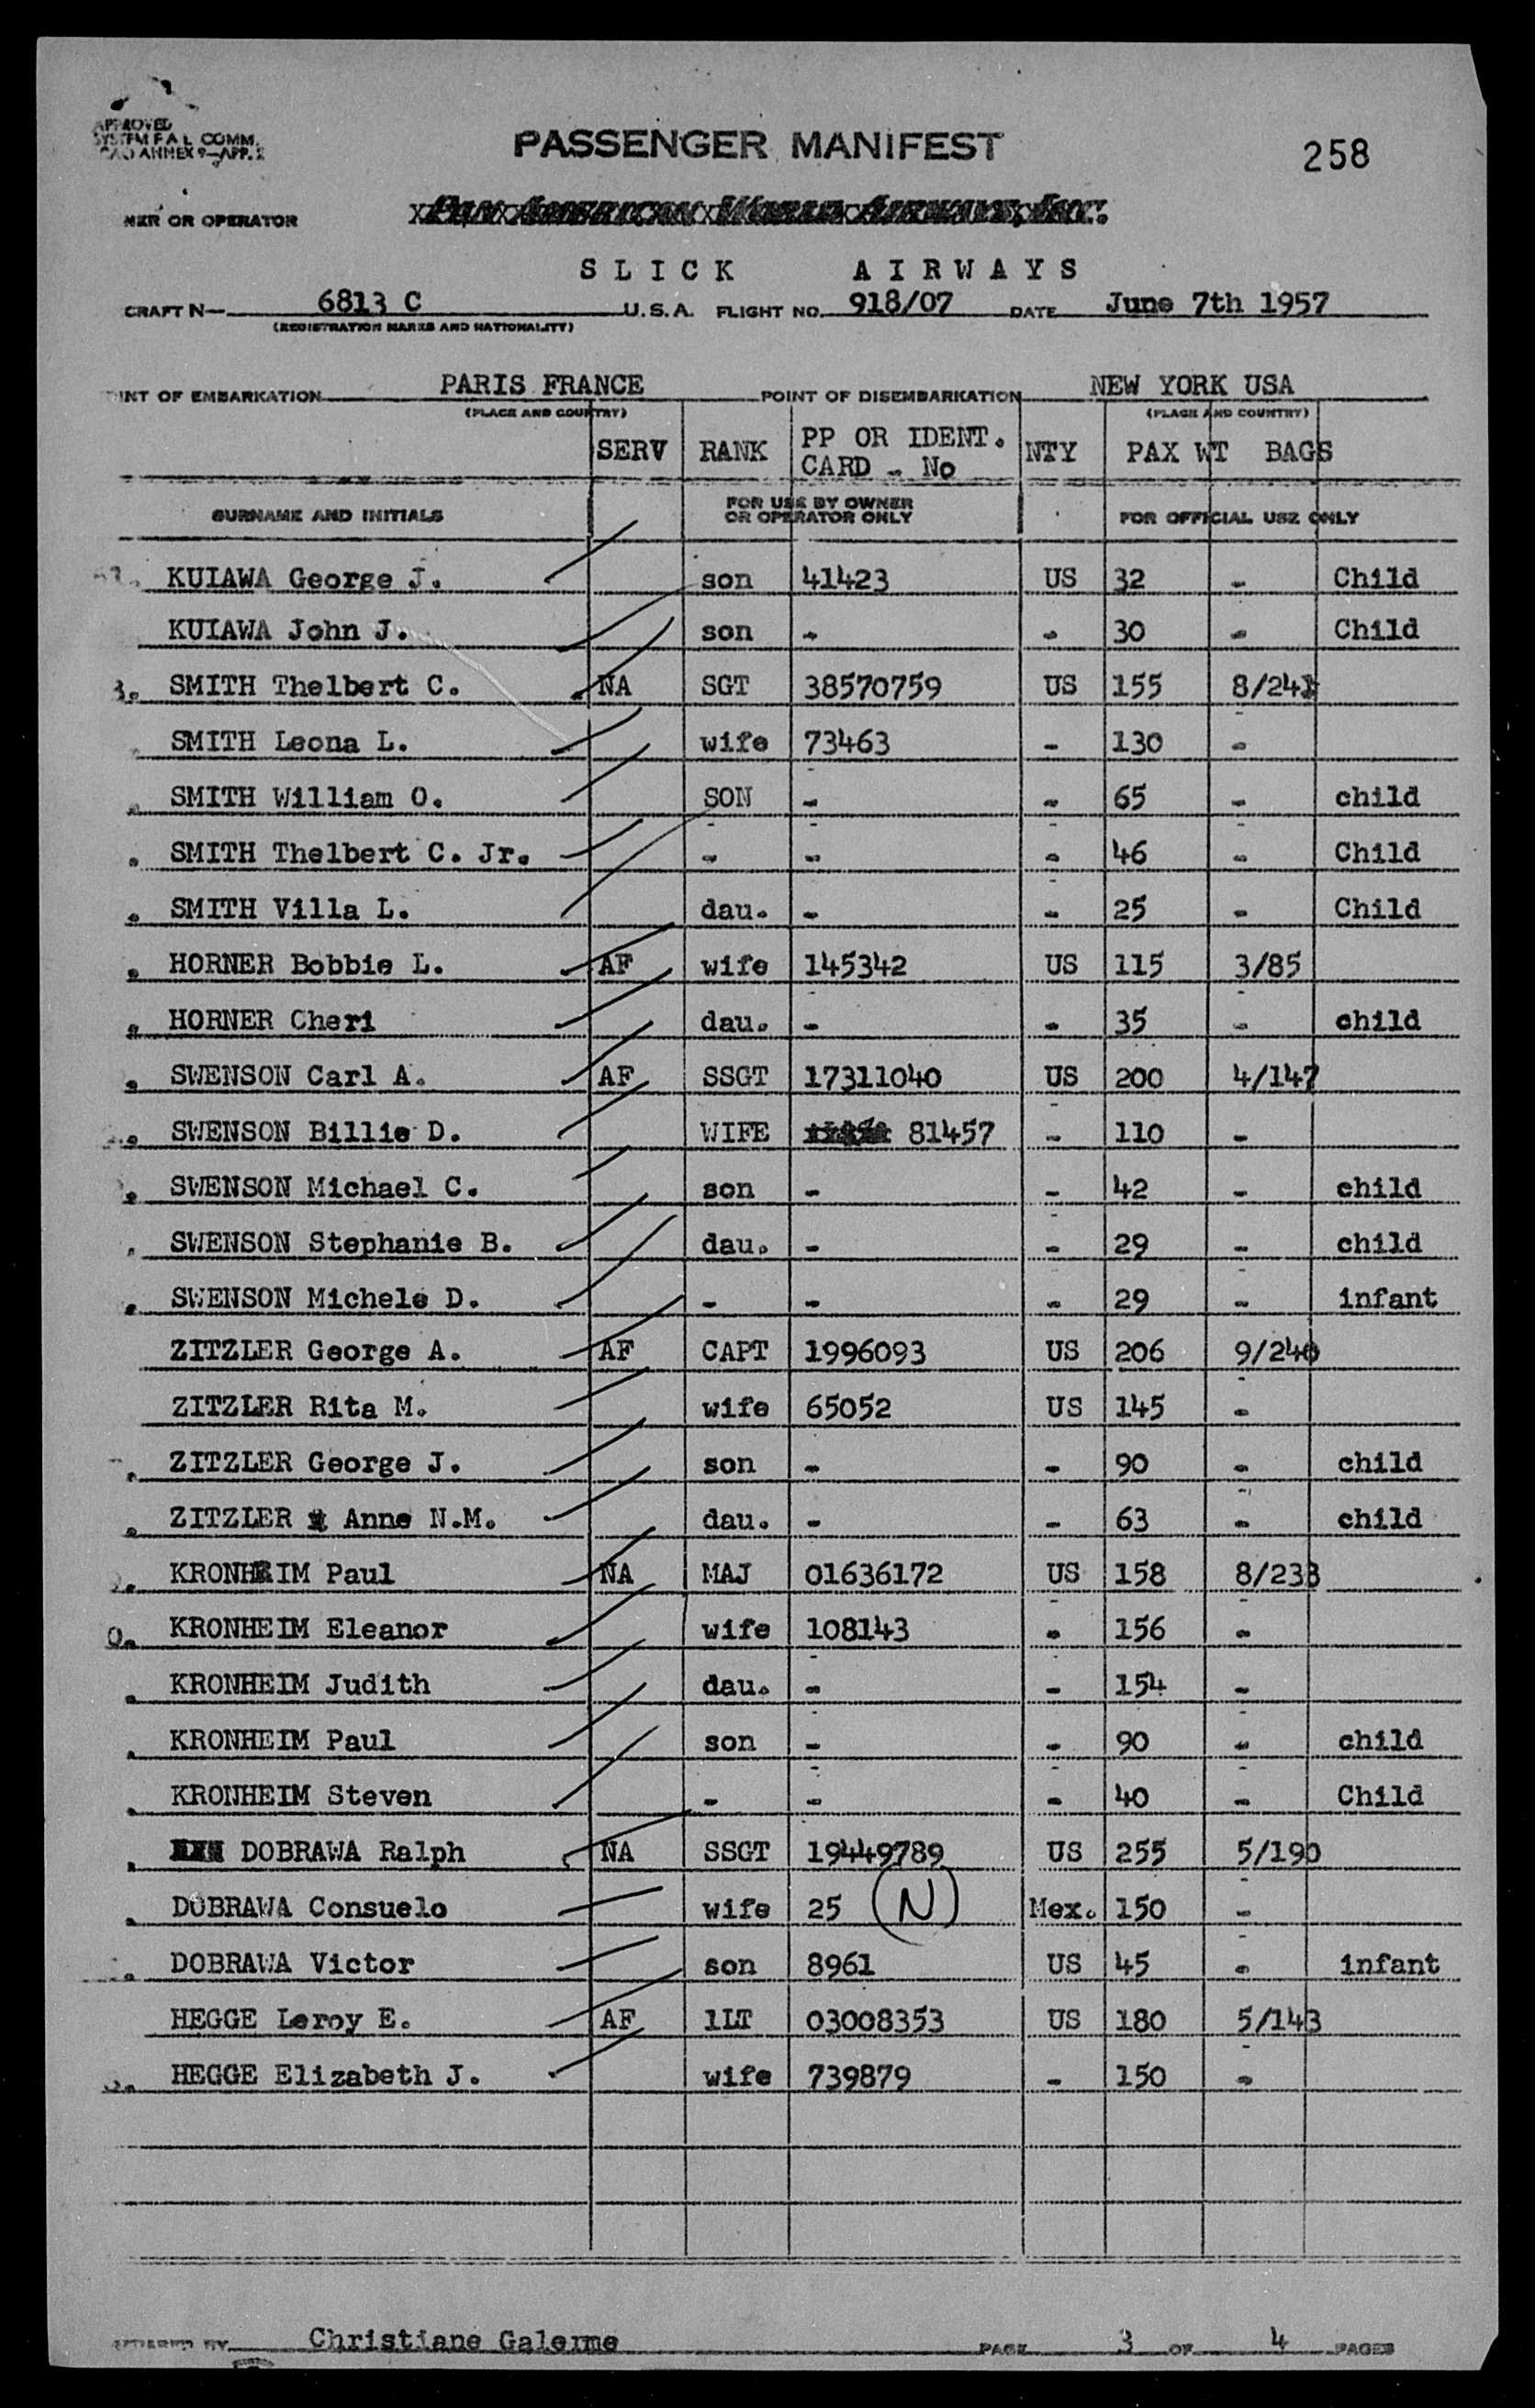 APPROVED
SYSTEM F A L COMM.
ICAO ANNEX 9—APP. 2
PASSENGER MANIFEST
258
NER OR OPERATOR Pan American World Airways, Inc.
SLICK AIRWAYS
CRAFT N— 6813 C U.S.A. FLIGHT NO. 918/07 DATE June 7th 1957
(REGISTRATION MARKS AND NATIONALITY)
INT OF EMBARKATION PARIS FRANCE POINT OF DISEMBARKATION NEW YORK USA
(PLACE AND COUNTRY) (PLACE AND COUNTRY)
SERV RANK PP OR IDENT. CARD - No NTY PAX WT BAGS
SURNAME AND INITIALS FOR USE BY OWNER OR OPERATOR ONLY FOR OFFICIAL USE ONLY
KUIAWA George J. son 41423 US 32 - Child
KUIAWA John J. son - - 30 - Child
3. SMITH Thelbert C. NA SGT 38570759 US 155 8/241
SMITH Leona L. wife 73463 - 130 -
SMITH William O. SON - - 65 - child
SMITH Thelbert C. Jr. - - - 46 - Child
SMITH Villa L. dau. - - 25 - Child
HORNER Bobbie L. AF wife 145342 US 115 3/85
HORNER Cheri dau. - - 35 - child
SWENSON Carl A. AF SSGT 17311040 US 200 4/147
SWENSON Billie D. WIFE 81457 - 110 -
SWENSON Michael C. son - - 42 - child
SWENSON Stephanie B. dau. - - 29 - child
SWENSON Michele D. - - - 29 - infant
ZITZLER George A. AF CAPT 1996093 US 206 9/240
ZITZLER Rita M. wife 65052 US 145 -
ZITZLER George J. son - - 90 - child
ZITZLER Anne N.M. dau. - - 63 - child
KRONHEIM Paul NA MAJ 01636172 US 158 8/233
0. KRONHEIM Eleanor wife 108143 - 156 -
KRONHEIM Judith dau. - - 154 -
KRONHEIM Paul son - - 90 - child
KRONHEIM Steven - - - 40 - Child
DOBRAWA Ralph NA SSGT 19449789 US 255 5/190
DOBRAWA Consuelo wife 25 (N) Mex. 150 -
DOBRAWA Victor son 8961 US 45 - infant
HEGGE Leroy E. AF 1LT 03008353 US 180 5/143
HEGGE Elizabeth J. wife 739879 - 150 -
Christiane Galerme PAGE 3 OF 4 PAGES